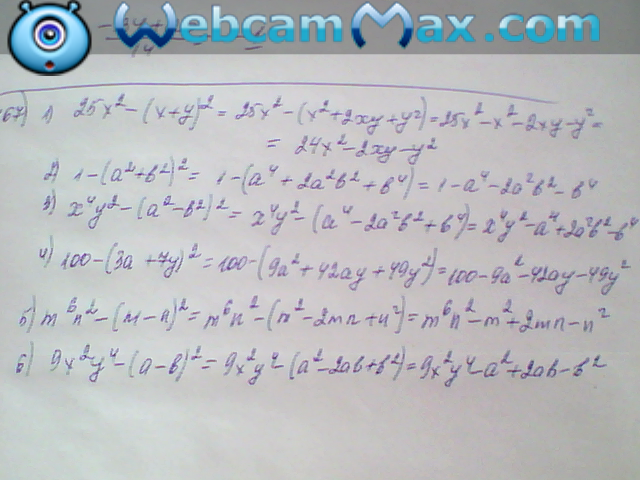 WebcamMax.com
67) 1) 25x² - (x+y)² = 25x² - (x² + 2xy + y²) = 25x² - x² - 2xy - y² =
= 24x² - 2xy - y²
2) 1 - (a² + b²)² = 1 - (a⁴ + 2a²b² + b⁴) = 1 - a⁴ - 2a²b² - b⁴
3) x⁴y² - (a² - b²)² = x⁴y² - (a⁴ - 2a²b² + b⁴) = x⁴y² - a⁴ + 2a²b² - b⁴
4) 100 - (3a + 7y)² = 100 - (9a² + 42ay + 49y²) = 100 - 9a² - 42ay - 49y²
5) m⁶n² - (m - n)² = m⁶n² - (m² - 2mn + n²) = m⁶n² - m² + 2mn - n²
6) 9x²y⁴ - (a - b)² = 9x²y⁴ - (a² - 2ab + b²) = 9x²y⁴ - a² + 2ab - b²